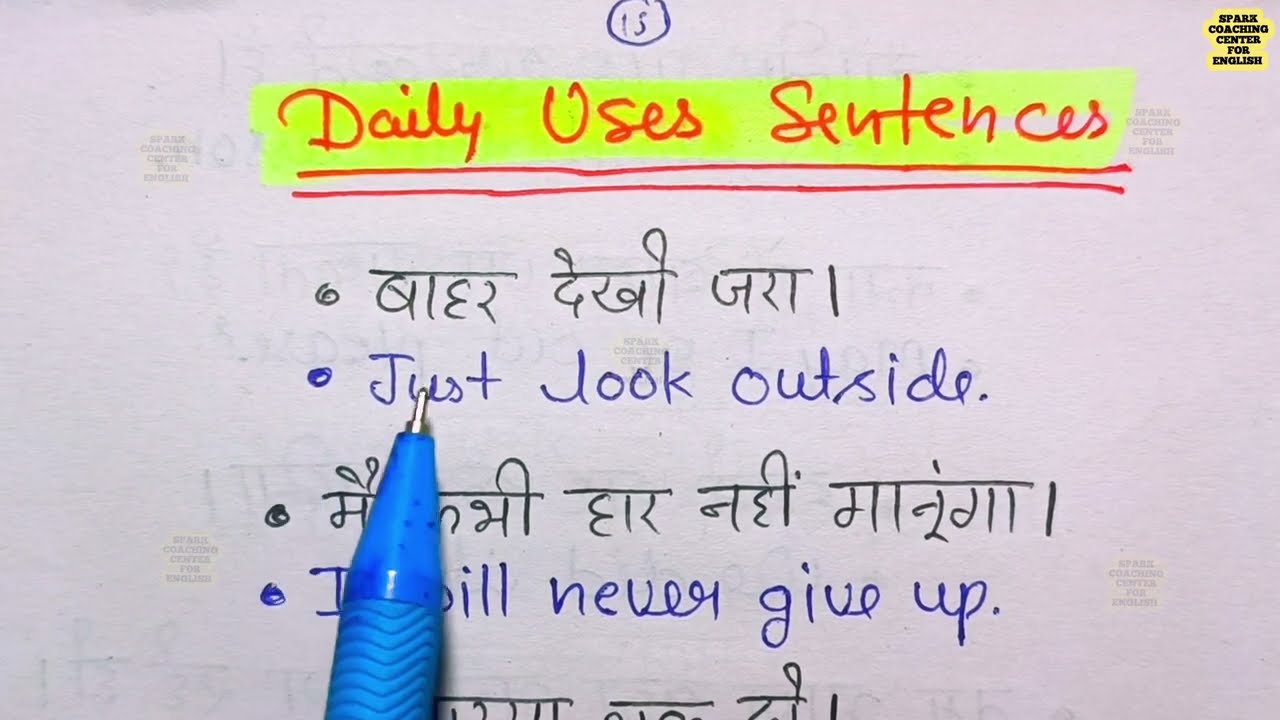 15
SPARK
COACHING
CENTER
FOR
ENGLISH
Daily Uses Sentences
SPARK
COACHING
CENTER
FOR
ENGLISH
SPARK
COACHING
CENTER
FOR
ENGLISH
• बाहर देखो जरा।
SPARK
COACHING
CENTER
• Just look outside.
• मैं कभी हार नहीं मानूंगा।
SPARK
COACHING
CENTER
FOR
ENGLISH
SPARK
COACHING
CENTER
FOR
ENGLISH
• I will never give up.